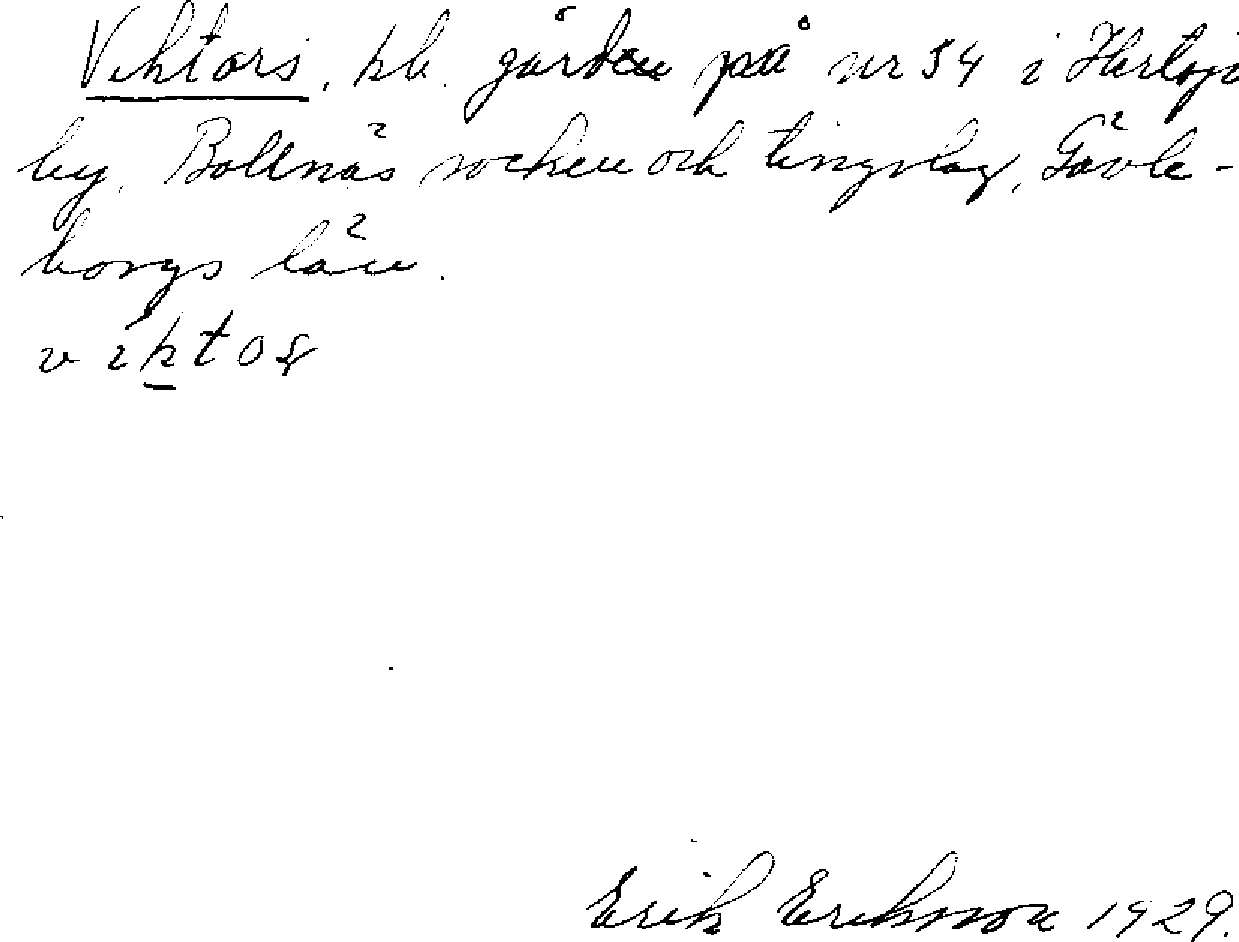 Viktors, kb. gården på nr 54 i Härtsjö
by, Bollnäs socken och tingslag, Gävle-
borgs län.
viktoʂ
Erik Eriksson 1929.